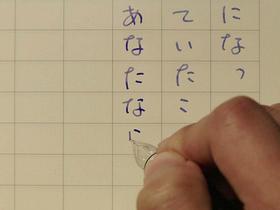 になっ
ていたこ
あなたなに